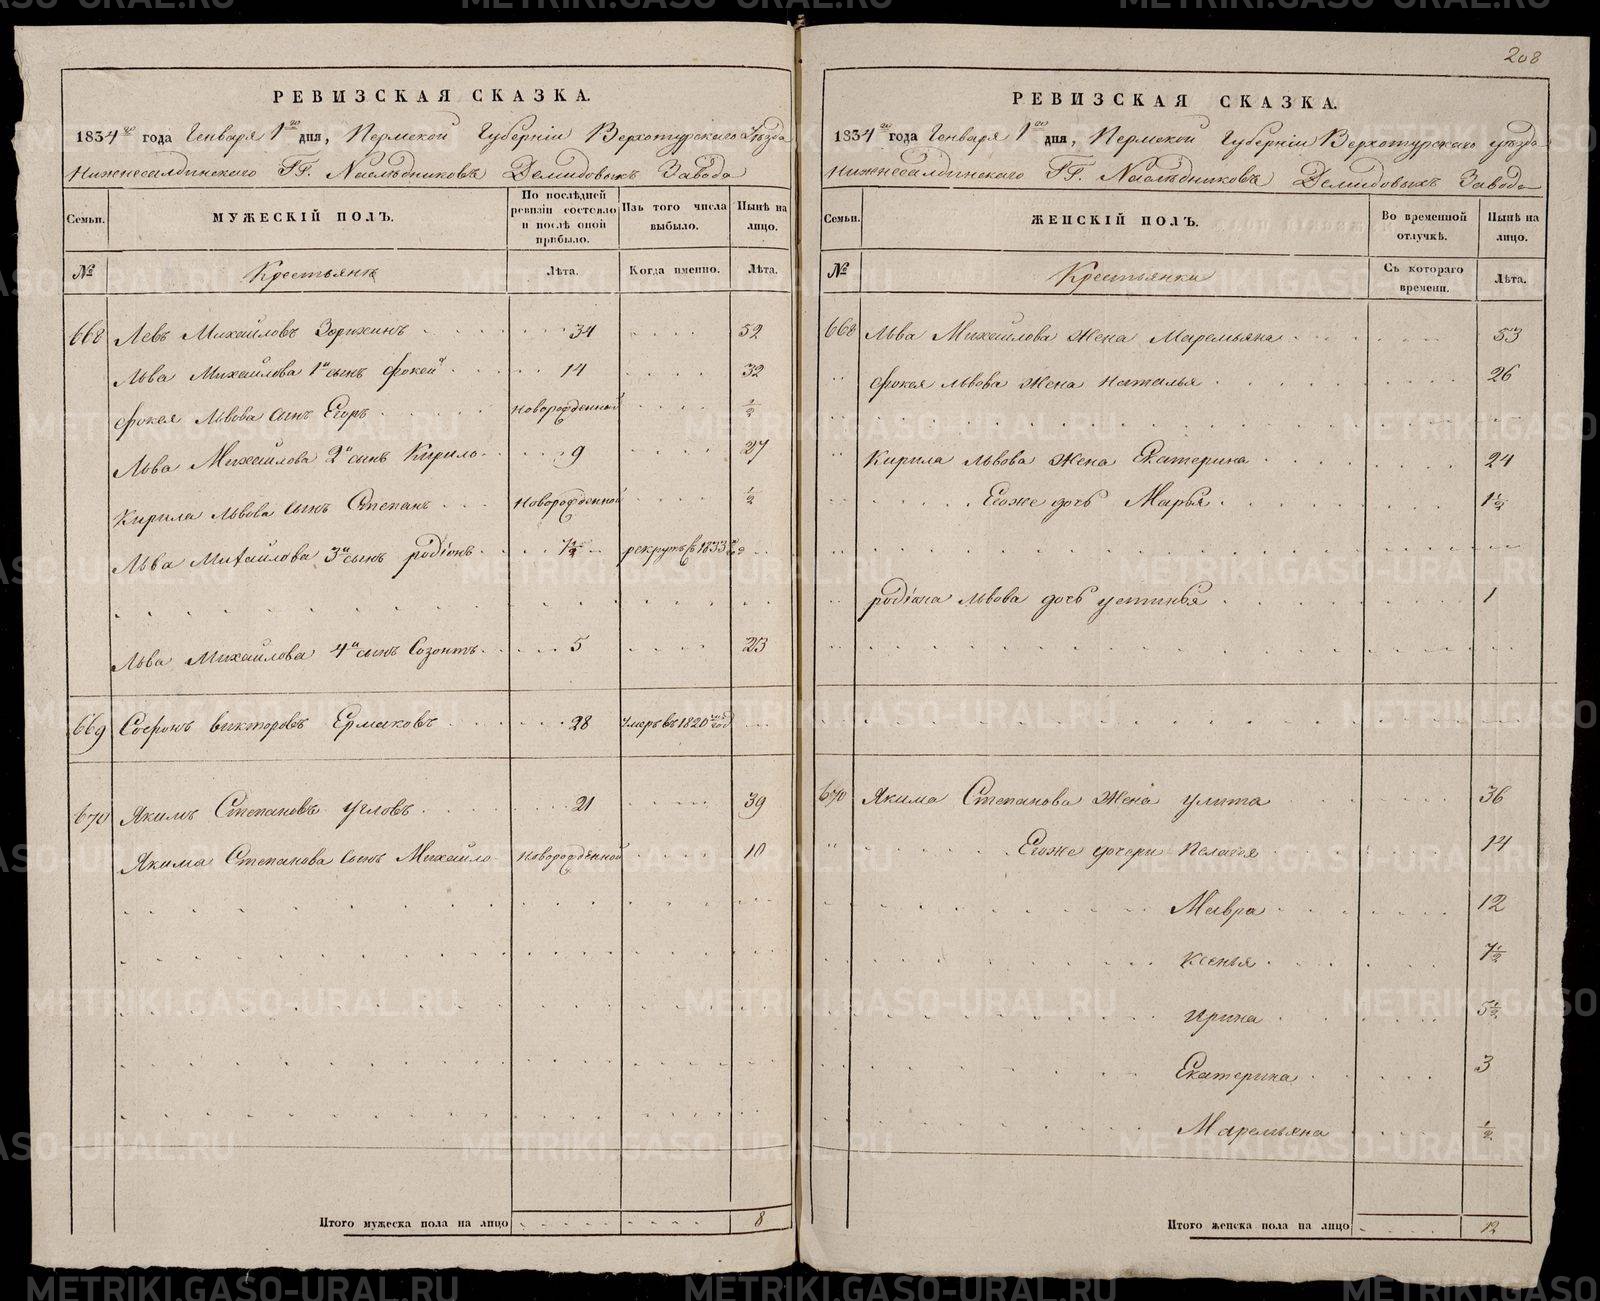 РЕВИЗСКАЯ СКАЗКА.
1834го года Генваря 1го дня, Пермской Губернiи Верхотурского Уѣзда
Нижнесалдинского ГГ. Наслѣдниковъ Демидовыхъ Завода
Семьи. МУЖЕСКIЙ ПОЛЪ. По послѣдней ревизiи состояло и послѣ оной прибыло. Изъ того числа выбыло. Нынѣ на лицо.
№ Крестьяне Лѣта. Когда именно. Лѣта.
668 Левъ Михайловъ Зорихинъ 34 52
Льва Михайлова 1й сынъ Фокей 14 32
Фокея Львова сынъ Егоръ Новорожденной ½
Льва Михайлова 2й сынъ Кирило 9 27
Кирила Львова сынъ Степанъ Новорожденной ½
Льва Михайлова 3й сынъ Родiонъ 7½ рекрутъ съ 1833го
Льва Михайлова 4й сынъ Созонтъ 5 23
669 Софронъ Викторовъ Ермаковъ 28 Умеръ въ 1820мъ году
670 Якимъ Степановъ Угловъ 21 39
Якима Степанова сынъ Михайло Новорожденной 10
Итого мужеска пола на лицо 8
208
РЕВИЗСКАЯ СКАЗКА.
1834го года Генваря 1го дня, Пермской Губернiи Верхотурского уѣзда
Нижнесалдинского ГГ. Наслѣдниковъ Демидовыхъ Завода
Семьи. ЖЕНСКIЙ ПОЛЪ. Во временной отлучкѣ. Нынѣ на лицо.
№ Крестьянки Съ котораго времени. Лѣта.
668 Льва Михайлова жена Маремьяна 53
Фокея Львова жена Наталья 26
Кирила Львова жена Екатерина 24
Егоже дочь Марья 1½
Родiона Львова дочь Устинья 1
670 Якима Степанова жена Улита 36
Егоже дочери Пелагея 14
Мавра 12
Ксенья 7½
Ирина 5½
Екатерина 3
Маремьяна ½
Итого женска пола на лицо 12
METRIKI.GASO-URAL.RU